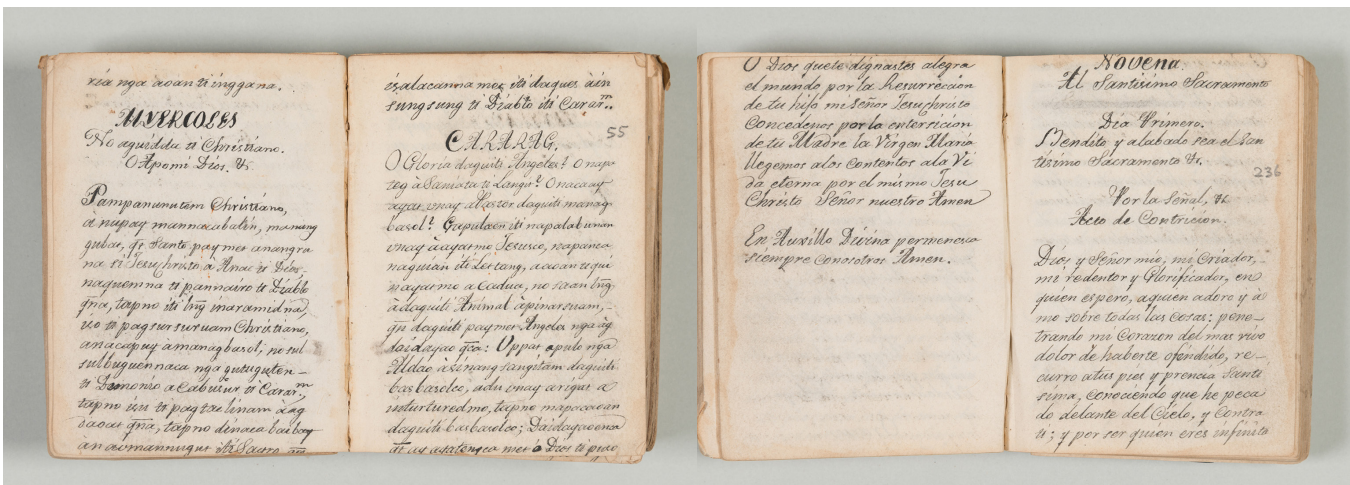 ria nga aoan ti inggana.
MIERCOLES
No aguidda ti Christiano.
O Apomi Dios. &c.
Pampanunutem Christiano,
à nupay mannacabalin, manung
gubat, qt Santo pay met anangru
na si Jesuchristo à Anac ti Dios
naquemna ti pannairo ti Diablo
qña, tapno iti bỹg inaramidna,
iso ti pagsursuruam Christiano,
anacapuy amanagbasol, no sul
sulbuguennaca nga guiuguten
ti Demonio a Cabusor ti Carar,m
tapno isu ti pagtaclinam à ag
baoat qña, tapno dinaca baibay
an aomannugut iti Sacro
isalacanna met iti daques àin
sungsung ti Diablo iti Carar..m
CARARAG.
55
O Gloria daguiti Angeles! O napa
teg à Santa ti Langit! O naca ay
ayat unay a Pastor daguiti manag
basol! Gapulaen iti napalalo unan
unay à ayatmo Jesusco, napanca
naguian iti Let-tang, a aoan ti qui
nayatmo a Cadua, no saan bỹg
à daguiti Animal àpinarsuam,
qt daguiti pay met Angeles nga ag
daidayao qca: Uppat apulo nga
Aldao à sinangsangitam daguiti
basbasolco, adu unay arigat a
inturturedmo, tapno mapacaoan
daguiti basbasolco; Daidayaoenca
qt ay-ayatenca met ó Dios ti piao
O Dios que te dignastes alegra
el mundo por la Resurrecion
de tu hijo mi señor Jesuchristo
Concedenos por la entersicion
de tu Madre la Virgen Maria
llegemos alos Contentos ala Vi
da eterna por el mismo Jesu
Christo Señor nuestro Amen
En Auxillo Divina permenesca
siempre Conosotros Amen.
Novena
Al Santisimo Sacramento
Dia Primero.
Bendito y alabado sea el San
tisimo Sacramento &c.
236
Por la Señal, &c
Acto de Contricion.
Dios y Señor mio, mi Criador,
mi redentor y Glorificador, en
quien espero, aquien adoro y à
mo sobre todas las Cosas: pene-
trando mi Corazon del mas vivo
dolor de haberte ofendido, re-
curro atus pies y prencia Santi
sima, conociendo que he peca
do delante del Cielo, y Contra
ti; y por ser quien erés infinita